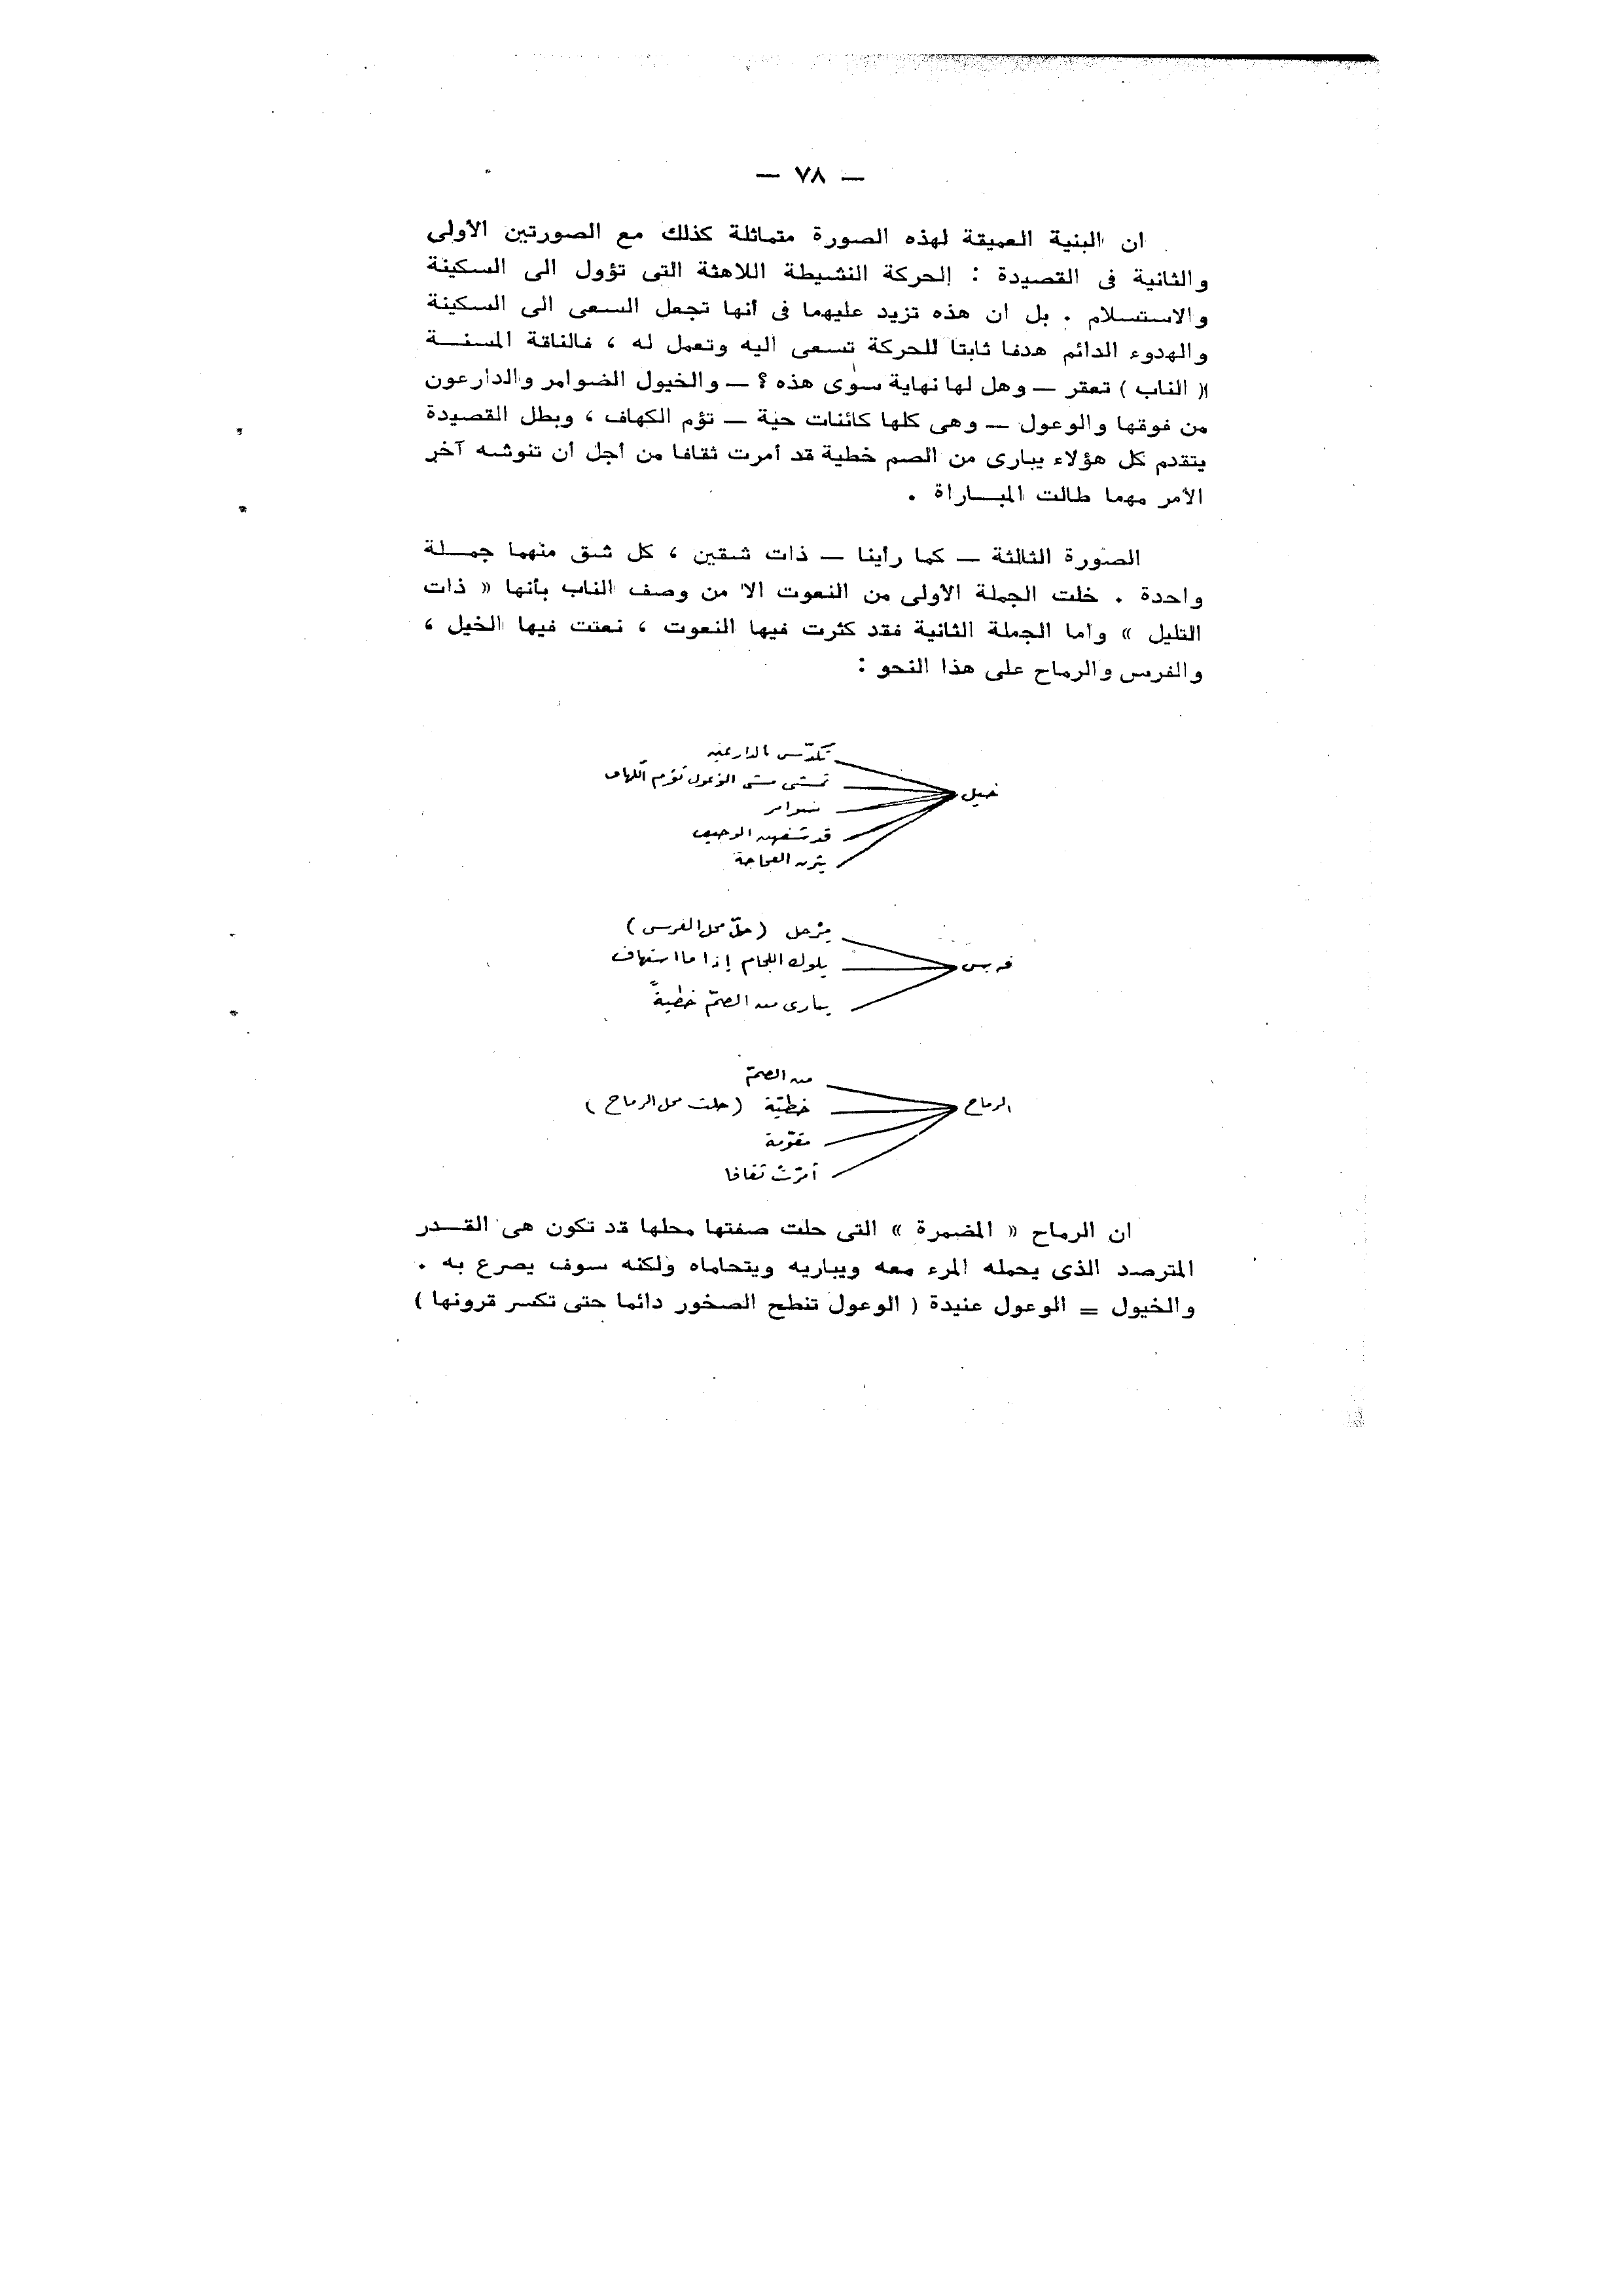 — ٧٨ —
ان البنية العميقة لهذه الصورة متماثلة كذلك مع الصورتين الأولى
والثانية فى القصيدة : الحركة النشيطة اللاهثة التى تؤول الى السكينة
والاستسلام . بل ان هذه تزيد عليهما فى أنها تجعل السعى الى السكينة
والهدوء الدائم هدفا ثابتا للحركة تسعى اليه وتعمل له ، فالناقة المسنة
( الناب ) تعقر — وهل لها نهاية سوى هذه ؟ — والخيول الضوامر والدارعون
من فوقها والوعول — وهى كلها كائنات حية — تؤم الكهاف ، وبطل القصيدة
يتقدم كل هؤلاء يبارى من الصم خطية قد أمرت ثقافا من أجل أن تنوشه آخر
الأمر مهما طالت المباراة .
الصورة الثالثة — كما رأينا — ذات شقين ، كل شق منهما جملة
واحدة . خلت الجملة الأولى من النعوت الا من وصف الناب بأنها « ذات
التليل » وأما الجملة الثانية فقد كثرت فيها النعوت ، نعتت فيها الخيل ،
والفرس والرماح على هذا النحو :
خيل
تكدّس بالدارعين
تمشى مشى الوعول تؤم الكهاف
ضوامر
قد شفهن الوجيف
يثرن العجاجة
فرس
مِرْجل (حلّ محل الفرس)
يلوك اللجام إذا ما استهاف
يبارى من الصمّ خطيةً
الرماح
من الصمّ
خطيّة (حلت محل الرماح)
مقوّمة
أمرّت ثقافا
ان الرماح « المضمرة » التى حلت صفتها محلها قد تكون هى القدر
المترصد الذى يحمله المرء معه ويباريه ويتحاماه ولكنه سوف يصرع به .
والخيول = الوعول عنيدة ( الوعول تنطح الصخور دائما حتى تكسر قرونها )